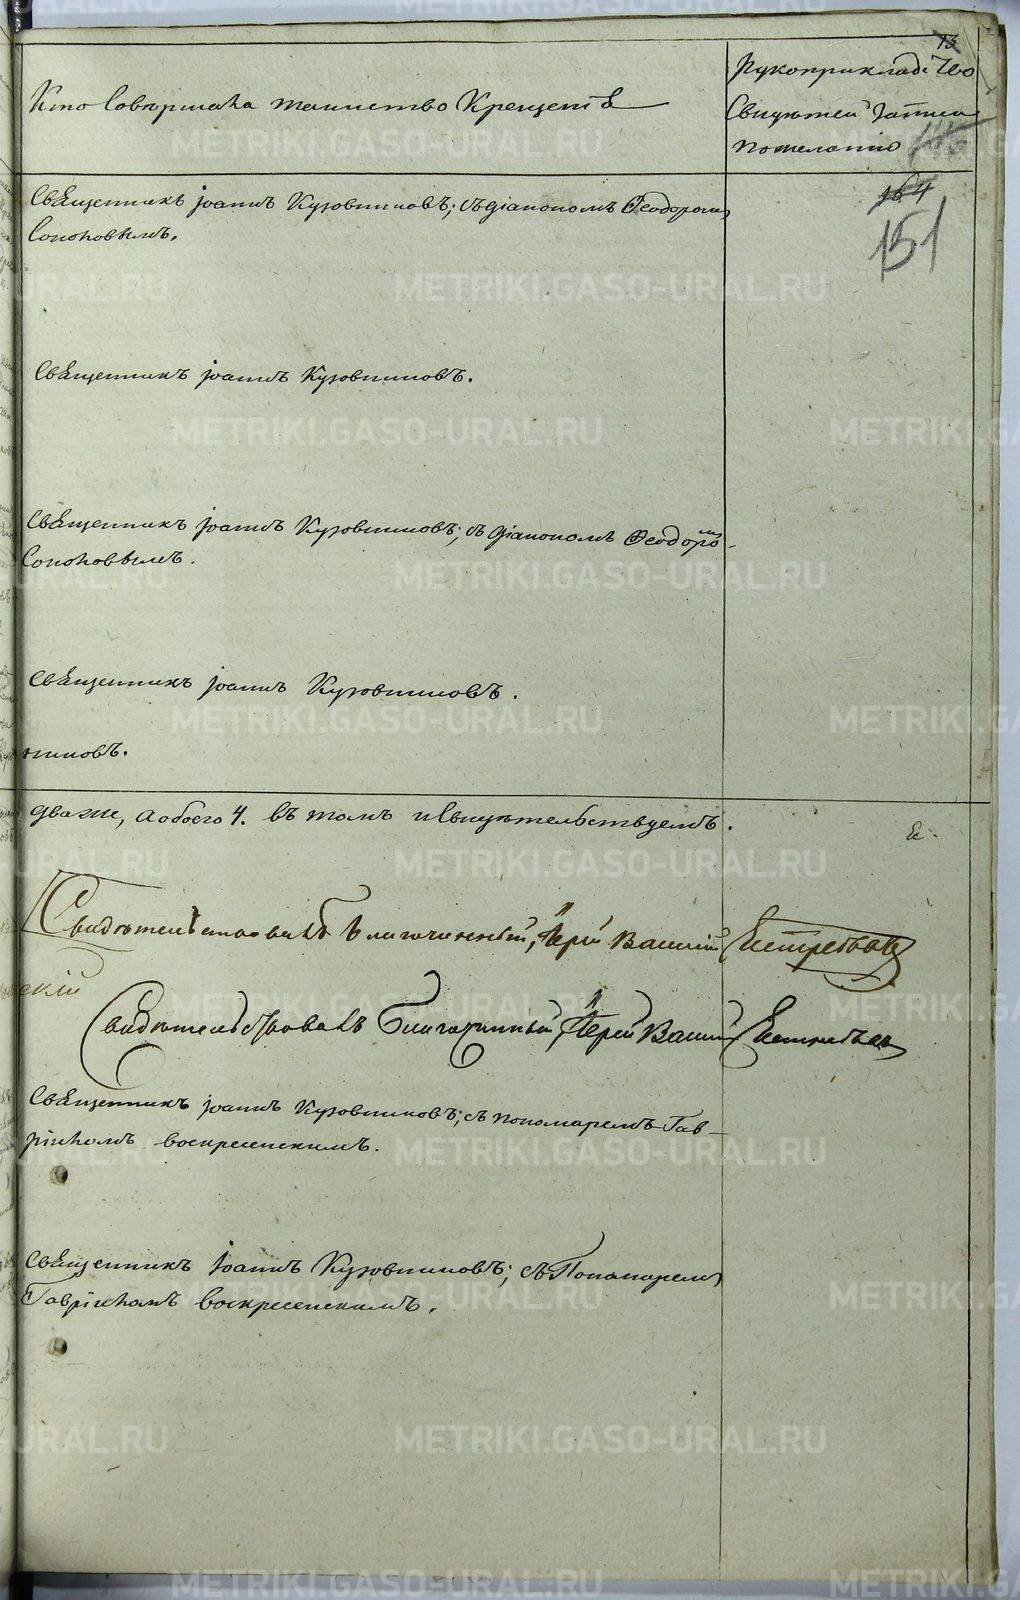 13
Кто Совершалъ таинство Крещенія
Рукоприкладство
Свидетелей записи
по желанію
164
151
Священникъ Іоаннъ Кузовниковъ; съ діакономъ Ѳеодоромъ
Соколовымъ.
Священникъ Іоаннъ Кузовниковъ.
Священникъ Іоаннъ Кузовниковъ; съ діакономъ Ѳеодоромъ
Соколовымъ.
Священникъ Іоаннъ Кузовниковъ.
никовъ.
дваже, а обоего 4. въ томъ и свидѣтельствуемъ.
Свидѣтельствовалъ Благочинный, Іерей Василій
скій
Свидѣтельствовалъ Благочинный, Іерей Василій
Священникъ Іоаннъ Кузовниковъ; съ пономаремъ Гав-
ріиломъ воскресенскимъ.
Священникъ Іоаннъ Кузовниковъ; съ Пономаремъ
Гавріиломъ воскресенскимъ.
METRIKI.GASO-URAL.RU